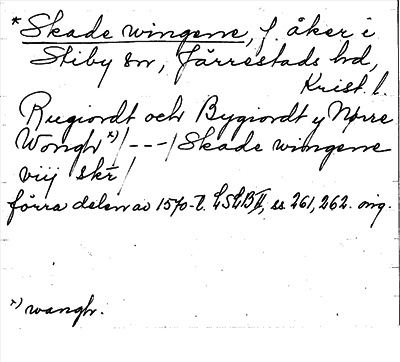 * Skade wingene, f. åker i
Stiby sn, Järrestads hd,
Krist. l.
Rugiordt och Bygiordt y Nørre
Wongh x) / --- / Skade wingene
viij skr̄ /
förra delen av 1570-t. LSLB II, ss 261, 262. orig.
x) wangh.